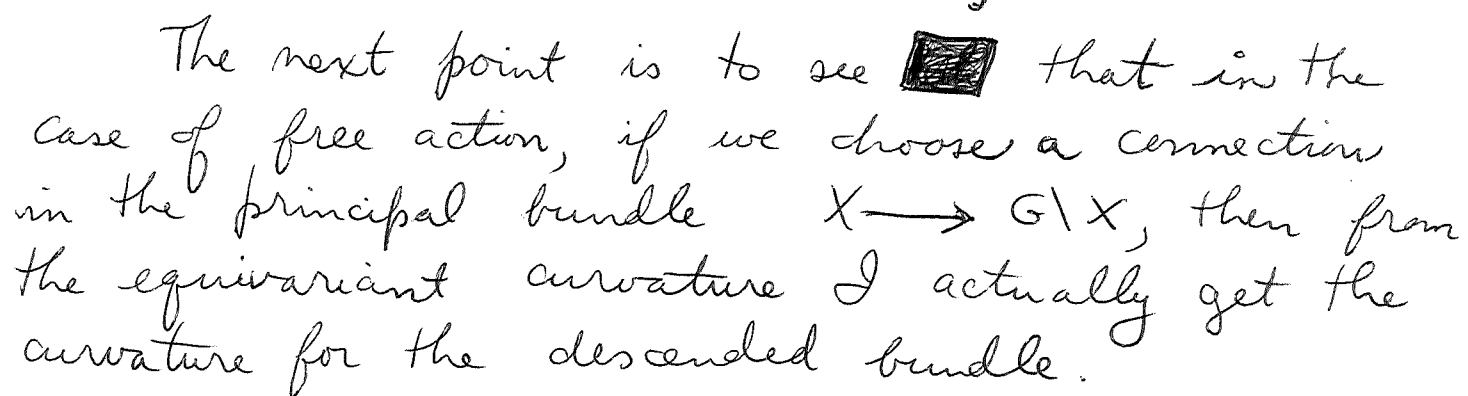 The next point is to see that in the
case of free action, if we choose a connection
in the principal bundle X ⟶ G\X, then from
the equivariant curvature I actually get the
curvature for the descended bundle.